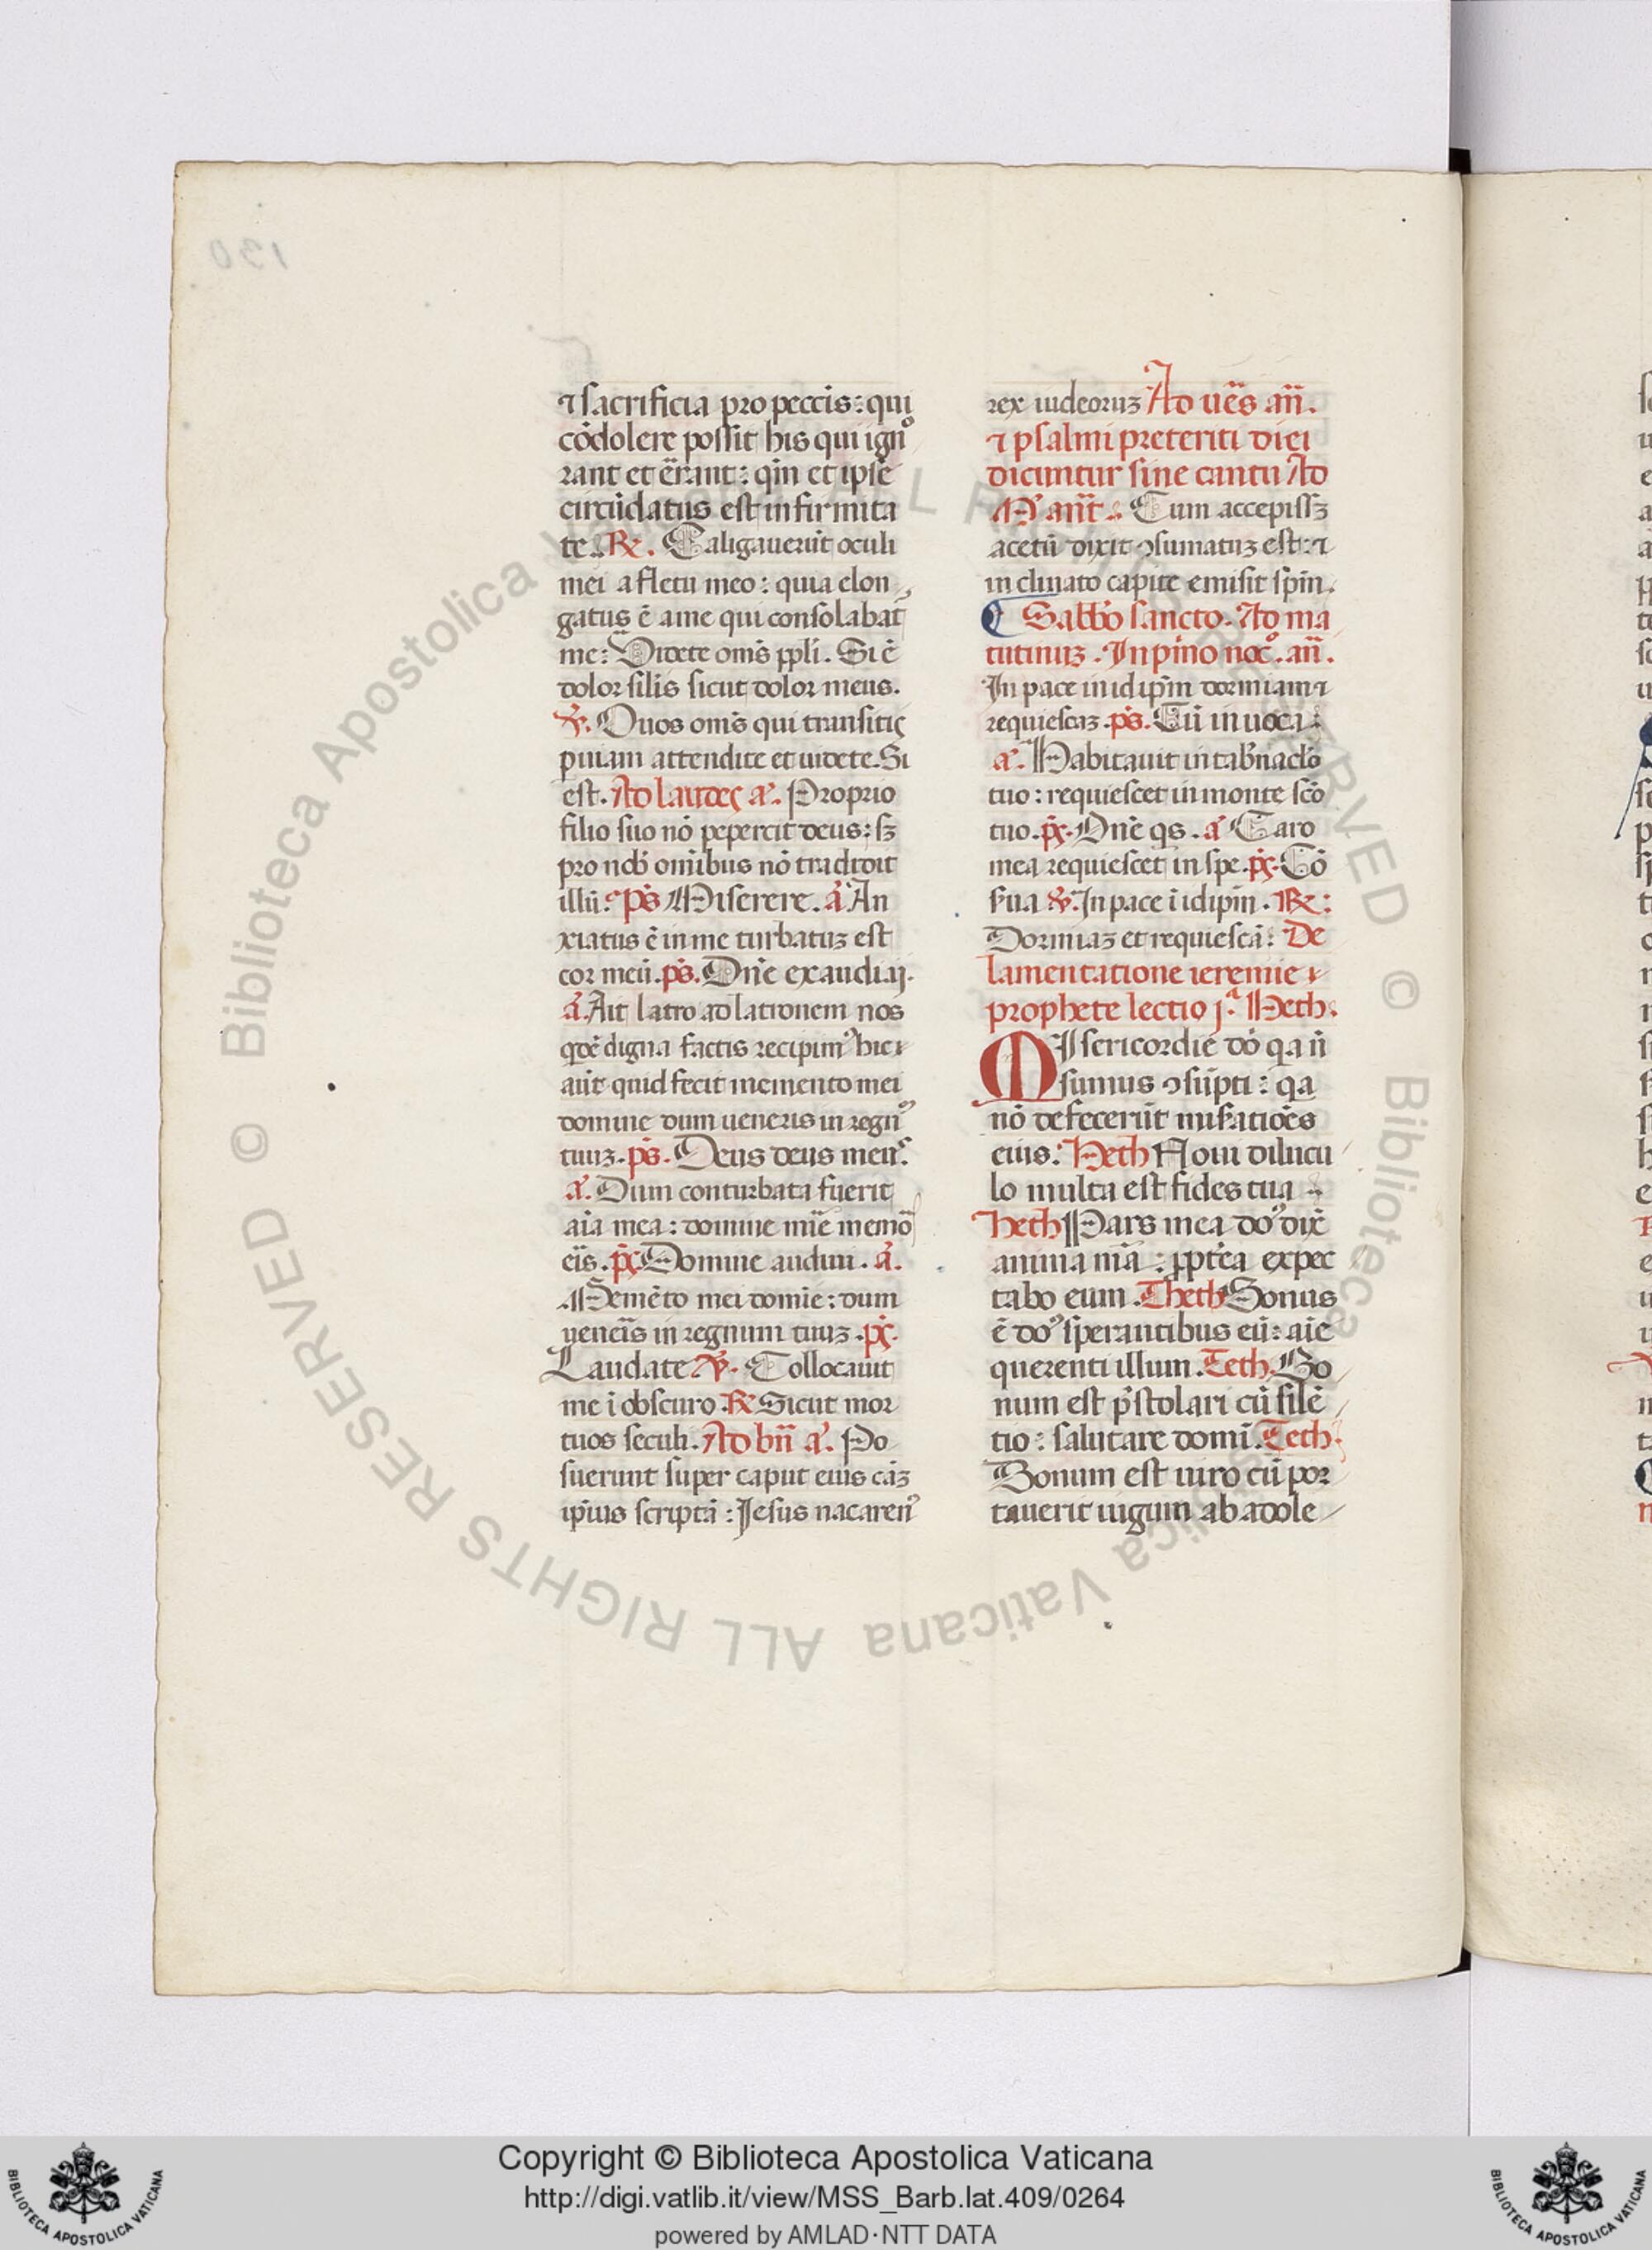 ⁊ sacrificia pro peccīs: qui
cōdolere possit his qui ignᵒ
rant et ērant: qm̄ et ipse
circūdatus est infirmita
te. ℞. Caligauerūt oculi
mei a fletu meo: quia elon
gatus ē a me qui consolabat̄
me: Videte om̄s ppl̄i. Si ē
dolor sil̄is sicut dolor meus.
℣. O uos om̄s qui transitis
p uiam attendite et uidete. Si
est. Ad laudes a͛. Proprio
filio suo nō pepercit deus: sꝫ
pro nob̄ om̄ibus nō tradidit
illū. p̄s Miserere. a͛ An
xiatus ē in me turbatuꝫ est
cor meū. p̄s. Dn̄e exaudi. ij.
a͛. Ait latro ad latronem nos
qdē digna factis recipimꝰ hic
aūt quid fecit memento mei
domine dum ueneris in regnᵘ
tuuꝫ. p̄s. Deus deus meꝰ.
a͛. Dum conturbata fuerit
aīa mea: domine mīe memō
eīs. p̄s Domine audiui. a͛.
Memēto mei domīe: dum
uenēis in regnum tuuꝫ. p̄s.
Laudate ℣. Collocauit
me ī obscuro. ℞ Sicut mor
tuos seculi. Ad bn̄ a͛. Po
suerunt super caput eius cāꝫ
ip̄ius scriptā: Jesus nacarenꝰ
rex iudeoruꝫ Ad uēs an̄.
⁊ psalmi preteriti diei
dicuntur sine cantu Ad
M͛ an̄t. Cum accepissꝫ
acetū dixit ꝯsumatuꝫ est: ⁊
inclinato capite emisit spm̄.
Sabb̄o sancto. Ad ma
tutinuꝫ. In p̄ino noc̄. an̄.
In pace in idip̄m dormiam ⁊
requiescaꝫ. p̄s. Cū inuoca
a͛. Habitauit in tab̄nacl̄o
tuo: requiescet in monte scō
tuo. p̄s. Dn̄e qs. a͛ Caro
mea requiescet in spe. p̄s. Cō
sua ℣. In pace ī idip̄m. ℞:
Dormiaꝫ et requiescā: De
lamentatione ieremie
prophete lectio jᵃ. Heth.
Misericordie dō qa n̄
sumus ꝯsūpti: qa
nō defecerūt mis̄atiōes
eius. Heth Noui dilucu
lo multa est fides tua
Heth Pars mea doꝰ dix̄
anima mīa: ꝓpt̄ea expec
tabo eum. Theth Bonus
ē doꝰ sperantibus eū: aīe
querenti illum. Teth. Bo
num est p̄stolari cū silē
tio: salutare domī. Teth.
Bonum est uiro cū por
tauerit iugum ab adole
Copyright © Biblioteca Apostolica Vaticana
http://digi.vatlib.it/view/MSS_Barb.lat.409/0264
powered by AMLAD·NTT DATA
BIBLIOTECA APOSTOLICA VATICANA
BIBLIOTECA APOSTOLICA VATICANA
© Biblioteca Apostolica Vaticana ALL RIGHTS RESERVED © Biblioteca Apostolica Vaticana ALL RIGHTS RESERVED
130